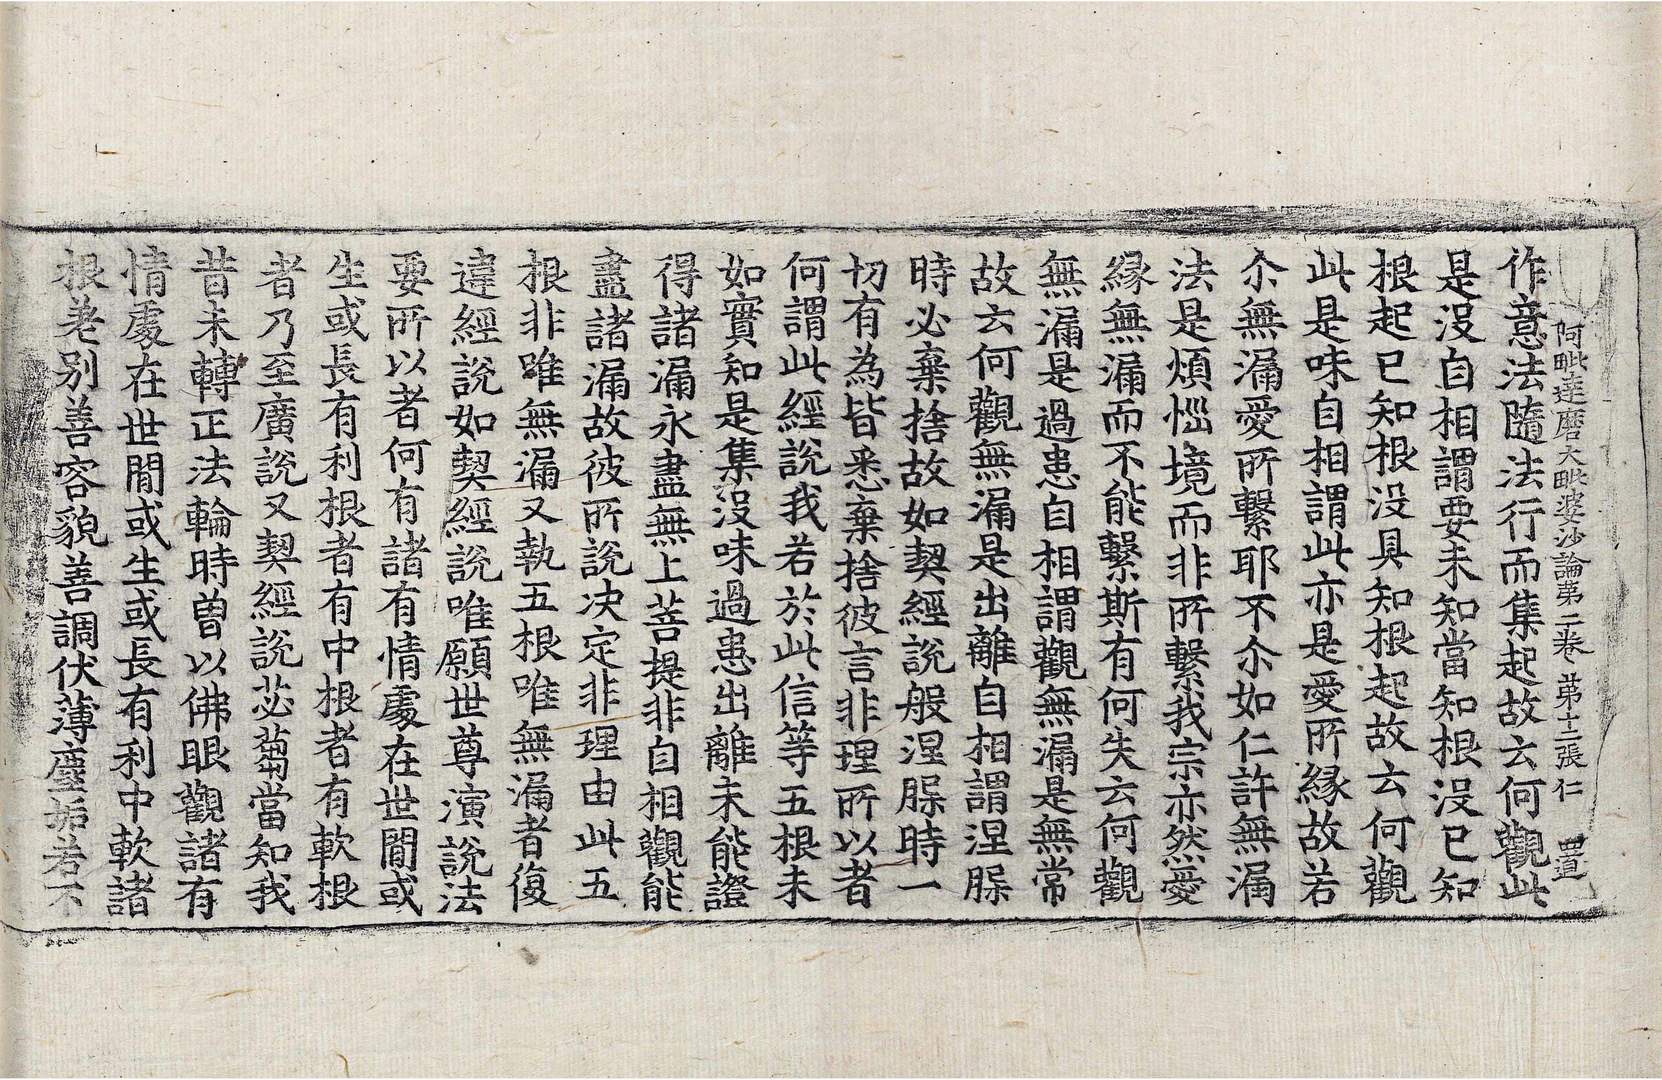 阿毗達磨大毗婆沙論第二卷 第十二張 仁 置
作意法隨法行而集起故云何觀此
是沒自相謂要未知當知根沒已知
根起已知根沒具知根起故云何觀
此是味自相謂此亦是愛所緣故若
尒無漏愛所繫耶不尒如仁許無漏
法是煩惱境而非所繫我宗亦然愛
緣無漏而不能繫斯有何失云何觀
無漏是過患自相謂觀無漏是無常
故云何觀無漏是出離自相謂涅槃
時必棄捨故如契經說般涅槃時一
切有為皆悉棄捨彼言非理所以者
何謂此經說我若於此信等五根未
如實知是集沒味過患出離未能證
得諸漏永盡無上菩提非自相觀能
盡諸漏故彼所說決定非理由此五
根非唯無漏又執五根唯無漏者復
違經說如契經說唯願世尊演說法
要所以者何有諸有情處在世閒或
生或長有利根者有中根者有軟根
者乃至廣說又契經說苾芻當知我
昔未轉正法輪時曾以佛眼觀諸有
情處在世閒或生或長有利中軟諸
根差別善容貌善調伏薄塵垢若不